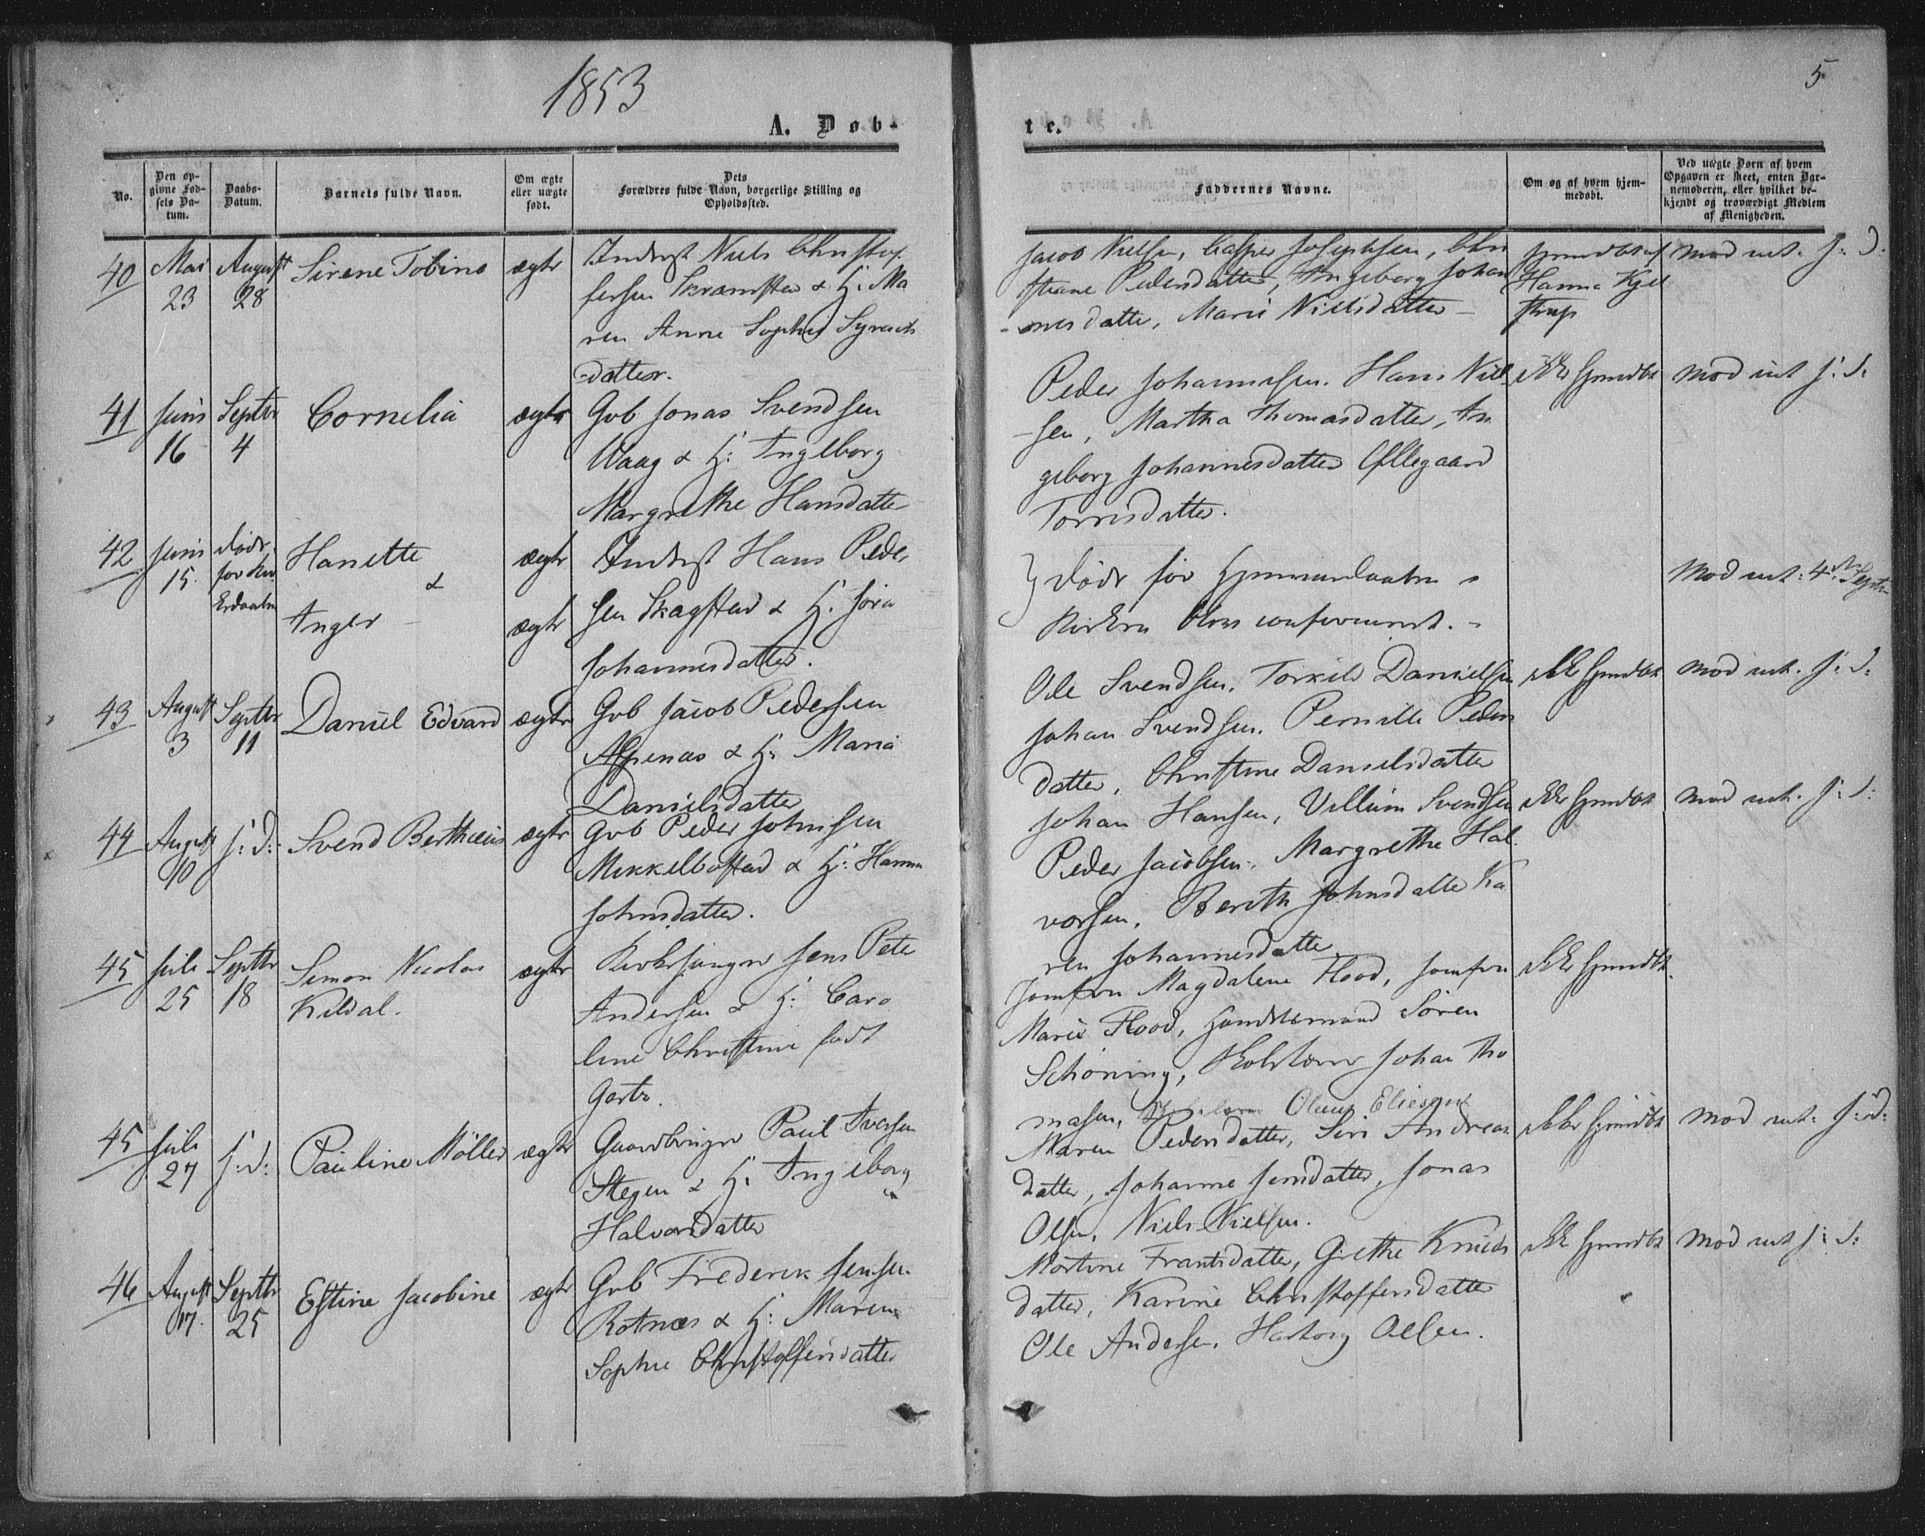 1853
5
A. Døb-
te.
No.
Den op-
givne Fød-
sels Da-
tum.
Daabs-
Datum.
Barnets fulde Navn.
Om ægte
eller uægte
født.
Dets
Forældres fulde Navn, borgerlige Stilling og
Opholdssted.
Faddernes Navne.
Om og af hvem hjem-
medøbt.
Ved uægte Børn af hvem
Opgaven er skeet, enten Bar-
nemoderen, eller hvilket be-
kjendt og troværdigt Medlem
af Menigheden.
40
Mai
23
August
28
Sirene Tobine
ægte
Inderst Niels Christof
fersen & H: Ma
ren Anne Sophie
datter.
Jacob Nielsen, Casper Josephsen, Chri
stiane Pedersdatter, Ingeborg Johan
nesdatter, Marie Nielsdatter
Hjemdøbt af
Hanna Kjel
strup
Mod vat. s: D.
41
Juni
16
Septbr
4
Cornelia
ægte
Gvb Jonas Svendsen
Waag & H: Ingeborg
Margrethe Hansdatter
Peder Johannesen. Hans Niel
sen, Martha Thomasdatter, In
geborg Johannesdatter Ellegaard
Torrisdatter.
ikke hjemdbt
Mod vat s: d:
42
Juni
15.
døde
før
Hanette
&
Inger
ægte
ægte
Inderst Hans Peder
sen Skagstad & H:
Johannesdatter.
døde før Hjemmedaaben i
Kirken blev confirmeret.
Mod vat: 4de Septbr
43
August
3
Septbr
11
Daniel Edvard
ægte
Gvb Jacob Pedersen
Alpenæs & H: Maria
Danielsdatter
Ole Svendsen. Torkild Danielsen
Johan Svendsen. Pernille Peders
datter, Christine Danielsdatter
ikke hjemdbt
Mod vat. s: d:
44
August
10
s: d:
Svend Berthæus
ægte
Gvb Peder Johnsen
Mikkelbostad & H: Hanna
Johnsdatter.
Johan Hansen, Villum Svendsen
Peder Jacobsen, Margrethe Hal
vorsen, Bereth Johnsdatter Ka
ren Johannesdatter
ikke hjemdbt
Mod vat. s: d:
45
Juli
25
Septbr
18
Simon Nicolai
Kildal.
ægte
Kirkesanger Jens Peter
Andersen & H: Caro
line Christine født
Jomfru Magdalene Flood, Jomfru
Marie Flood, Handelsmand Sören
Schöning, Skolelærer Johan Tho
masen, Oluf Eliesen
ikke hjemdbt.
45
Juli
27
s: d:
Pauline Möller
ægte
Gaardbruger Paul Iversen
Stegen & H: Ingeborg
Halvorsdatter
Maren Pedersdatter, Siri Andreas
datter, Johanne Jensdatter, Jonas
Olsen, Niels Nielsen.
ikke hjemdbt
Mod vat: s: d:
46
August
17.
Septbr
25
Estine Jacobine
ægte
Gvb Frederik Jensen
Rotnæs & H: Maren
Sophie Christoffersdatter
Martine Frantsdatter, Grethe Knuds
datter, Karine Christoffersdatter
Ole Andersen, Hartvig Olsen.
ikke hjemdbt
Mod vat s: d: